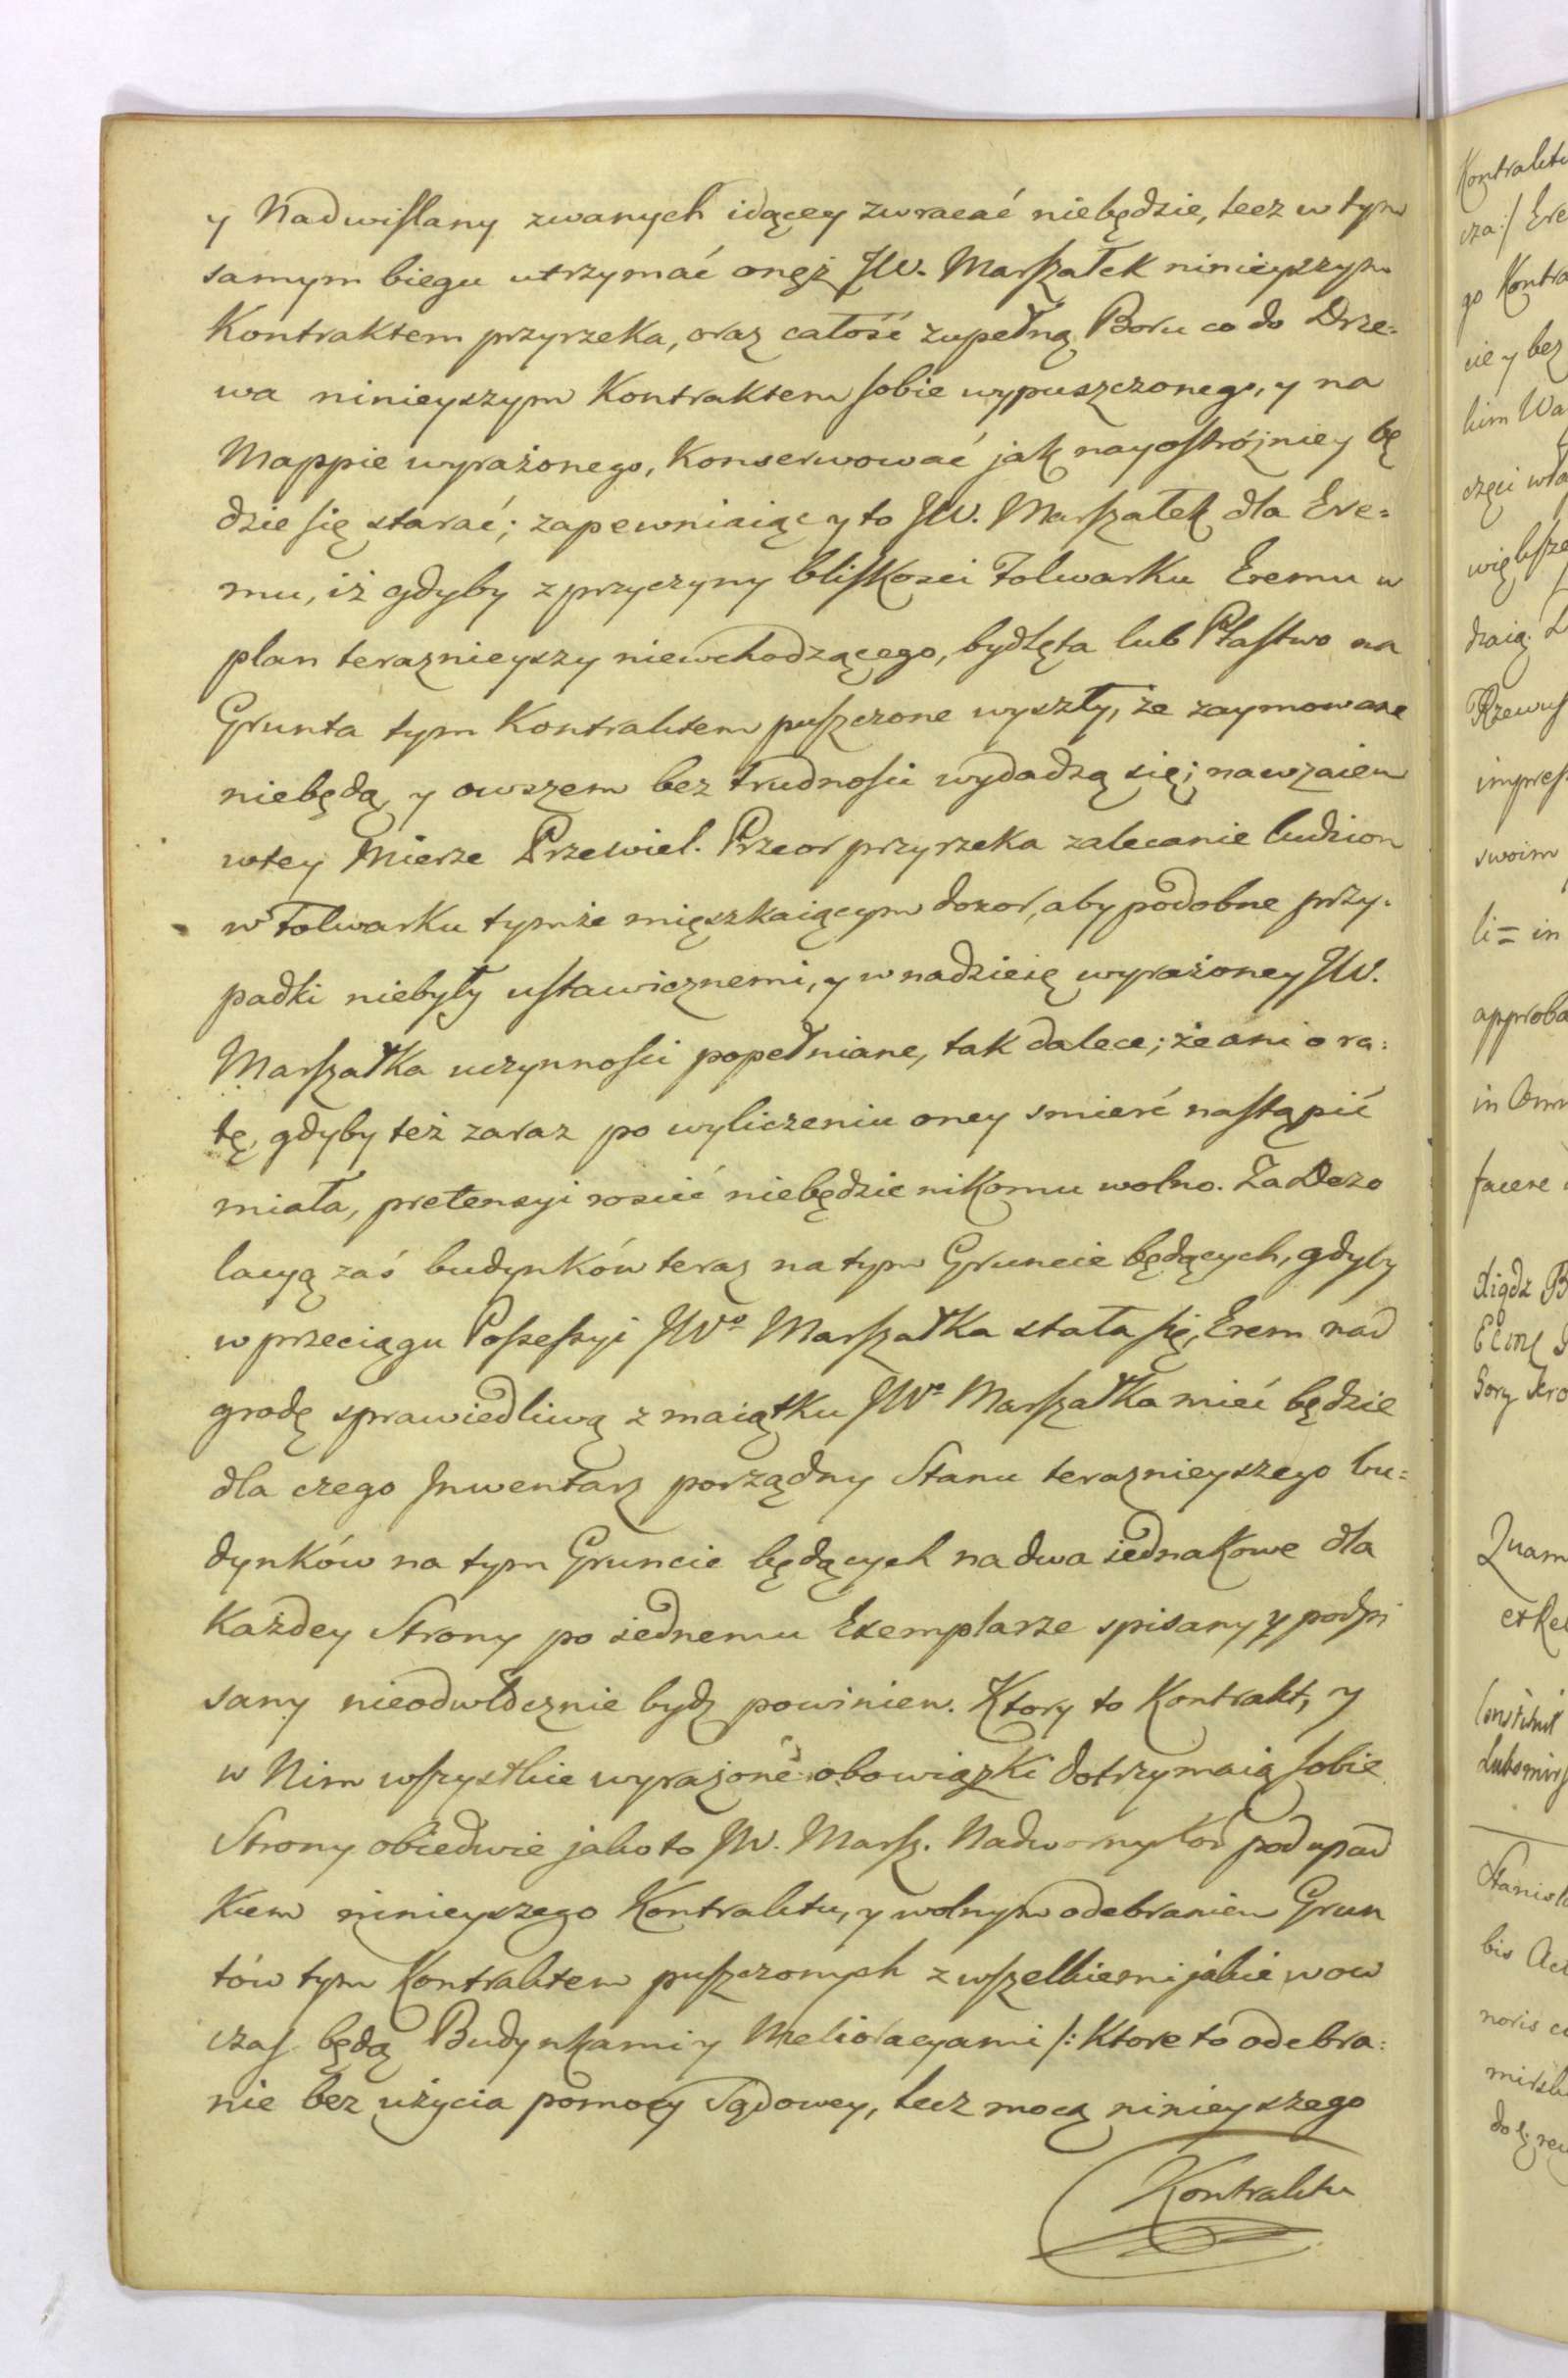 y Nadwiſlany zwanych idącey zwracać niebędzie, lecz w tym
samym biegu utrzymać onęż JW. Marſzałek ninieyszym
Kontraktem przyrzeka, oraz całość zupełną Boru co do Drze=
wa ninieyszym Kontraktem ſobie wypuszczonego, y na
Mappie wyrażonego, Konserwować jak nayoſtróżniey bę
dzie ſię starać; zapewniaiąc y to JW. Marſzałek dla Ere=
mu, iż gdyby z przyczyny bliſkosci Folwarku Eremu w
plan teraznieyszy niewchodzącego, bydlęta lub Ptaſtwo na
Grunta tym Kontraktem puſzczone wyszły, że zaymowane
niebędą y owszem bez trudnoſci wydadzą się; nawzaiem
w tey Mierze Przewiel. Przeor przyrzeka zalecanie ludziom
w Folwarku tymże mięszkaiącym dozor, aby podobne przy=
padki niebyły uſtawicznemi, y w nadzieię wyrażoney JW.
Marſzałka uczynnoſci popełniane, tak dalece; że ani o ra=
tę, gdyby też zaraz po wyliczeniu oney smierć naſtąpić
miała, pretensyi rościć niebędzie nikomu wolno. Za Dezo
lacyą zaś budynków teraz na tym Gruncie będących, gdyby
w przeciągu Poſseſsyi JWo Marſzałka stała ſię, Erem nad
grodę sprawiedliwą z maiątku JWo Marſzałka mieć będzie
dla czego Jnwentarz porządny Stanu teraznieyszego bu=
dynków na tym Gruncie będących na dwa iednakowe dla
Każdey Strony po iednemu Exemplarze spisany y podpi
sany nieodwłócznie bydz powinien. Ktory to Kontrakt, y
w Nim wſzystkie wyrażone obowiązki dotrzymaią ſobie
Strony obiedwie jako to JW. Marſz. Nadworny Kor pod upad
kiem ninieyszego Kontraktu, y wolnym odebraniem Grun
tów tym Kontraktem puſzczonych z wſzelkiemi jakie wow
czaſ będą Budynkami y Melioracyami /: Ktore to odebra=
nie bez użycia pomocy Sądowey, lecz mocą ninieyszego
Kontraktu